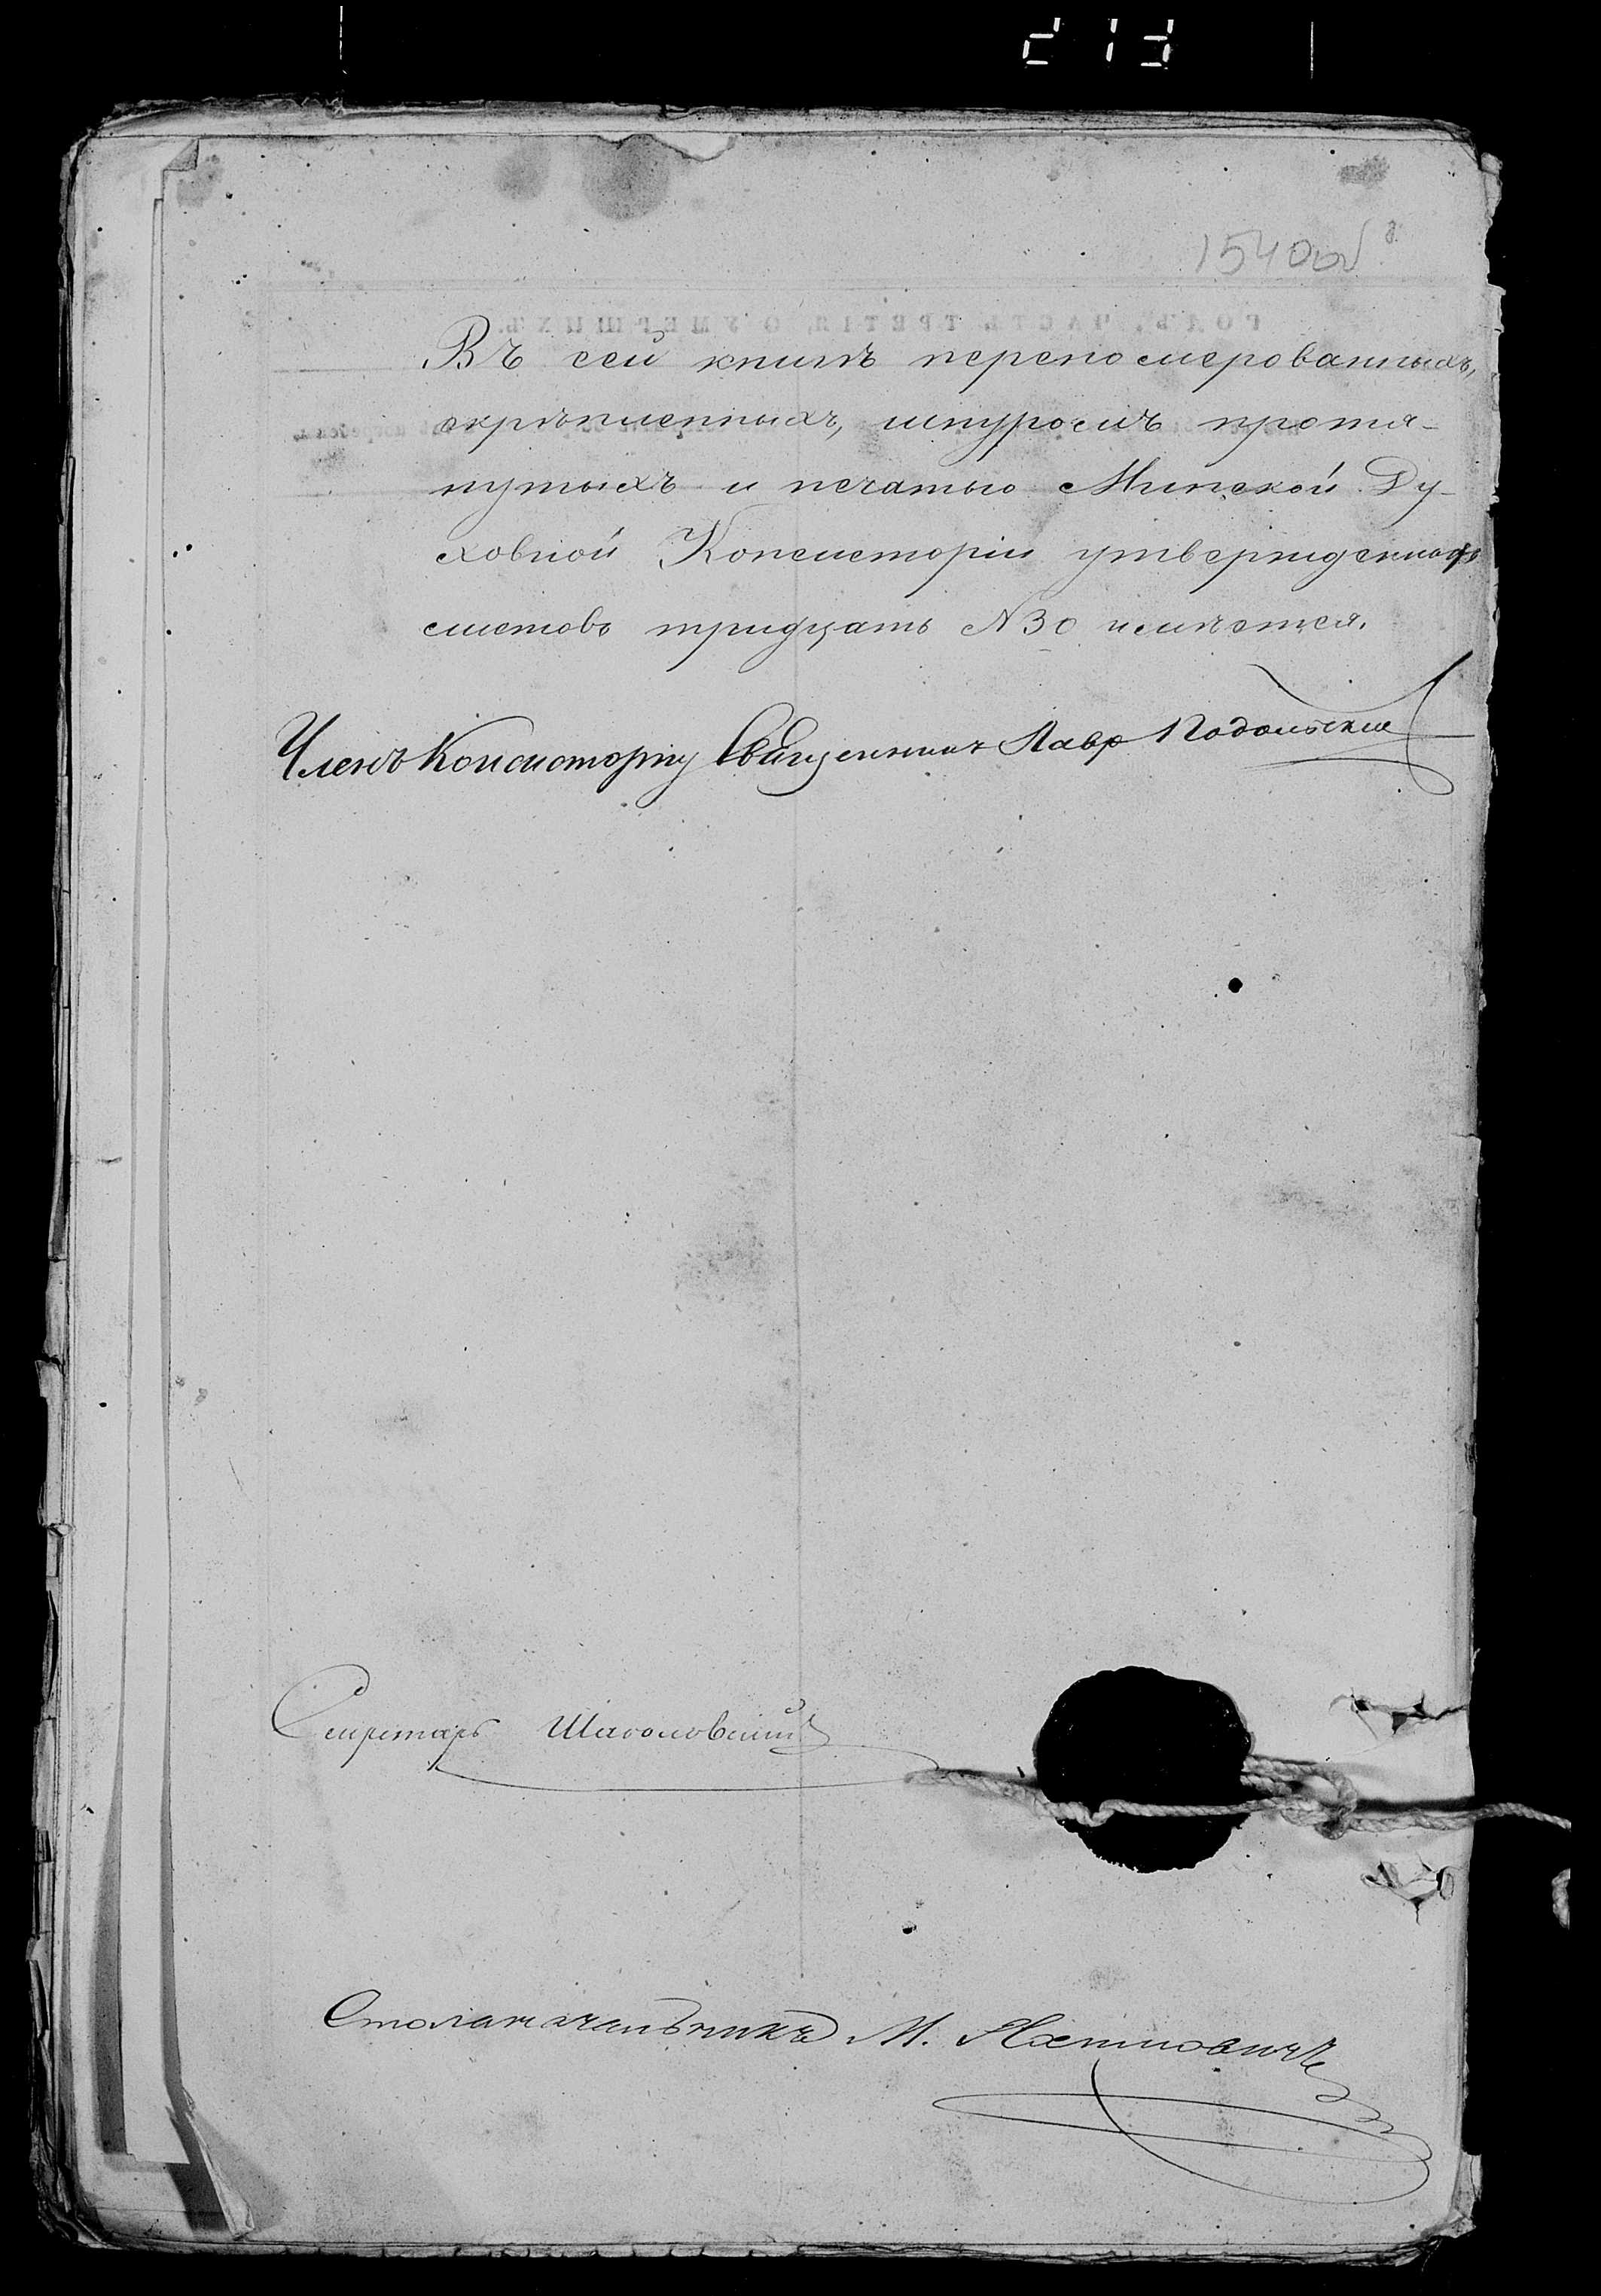 1540об
Въ сей книгѣ перепомерованныхъ,
скрѣпленныхъ, шнуромъ протя-
нутыхъ и печатью Минской Ду-
ховной Консисторіи утвержденныхъ
листовъ тридцать №30 имѣется.
Членъ Консисторіи Священникъ Лавръ Подольскій
Секретарь
Столоначальникъ М.